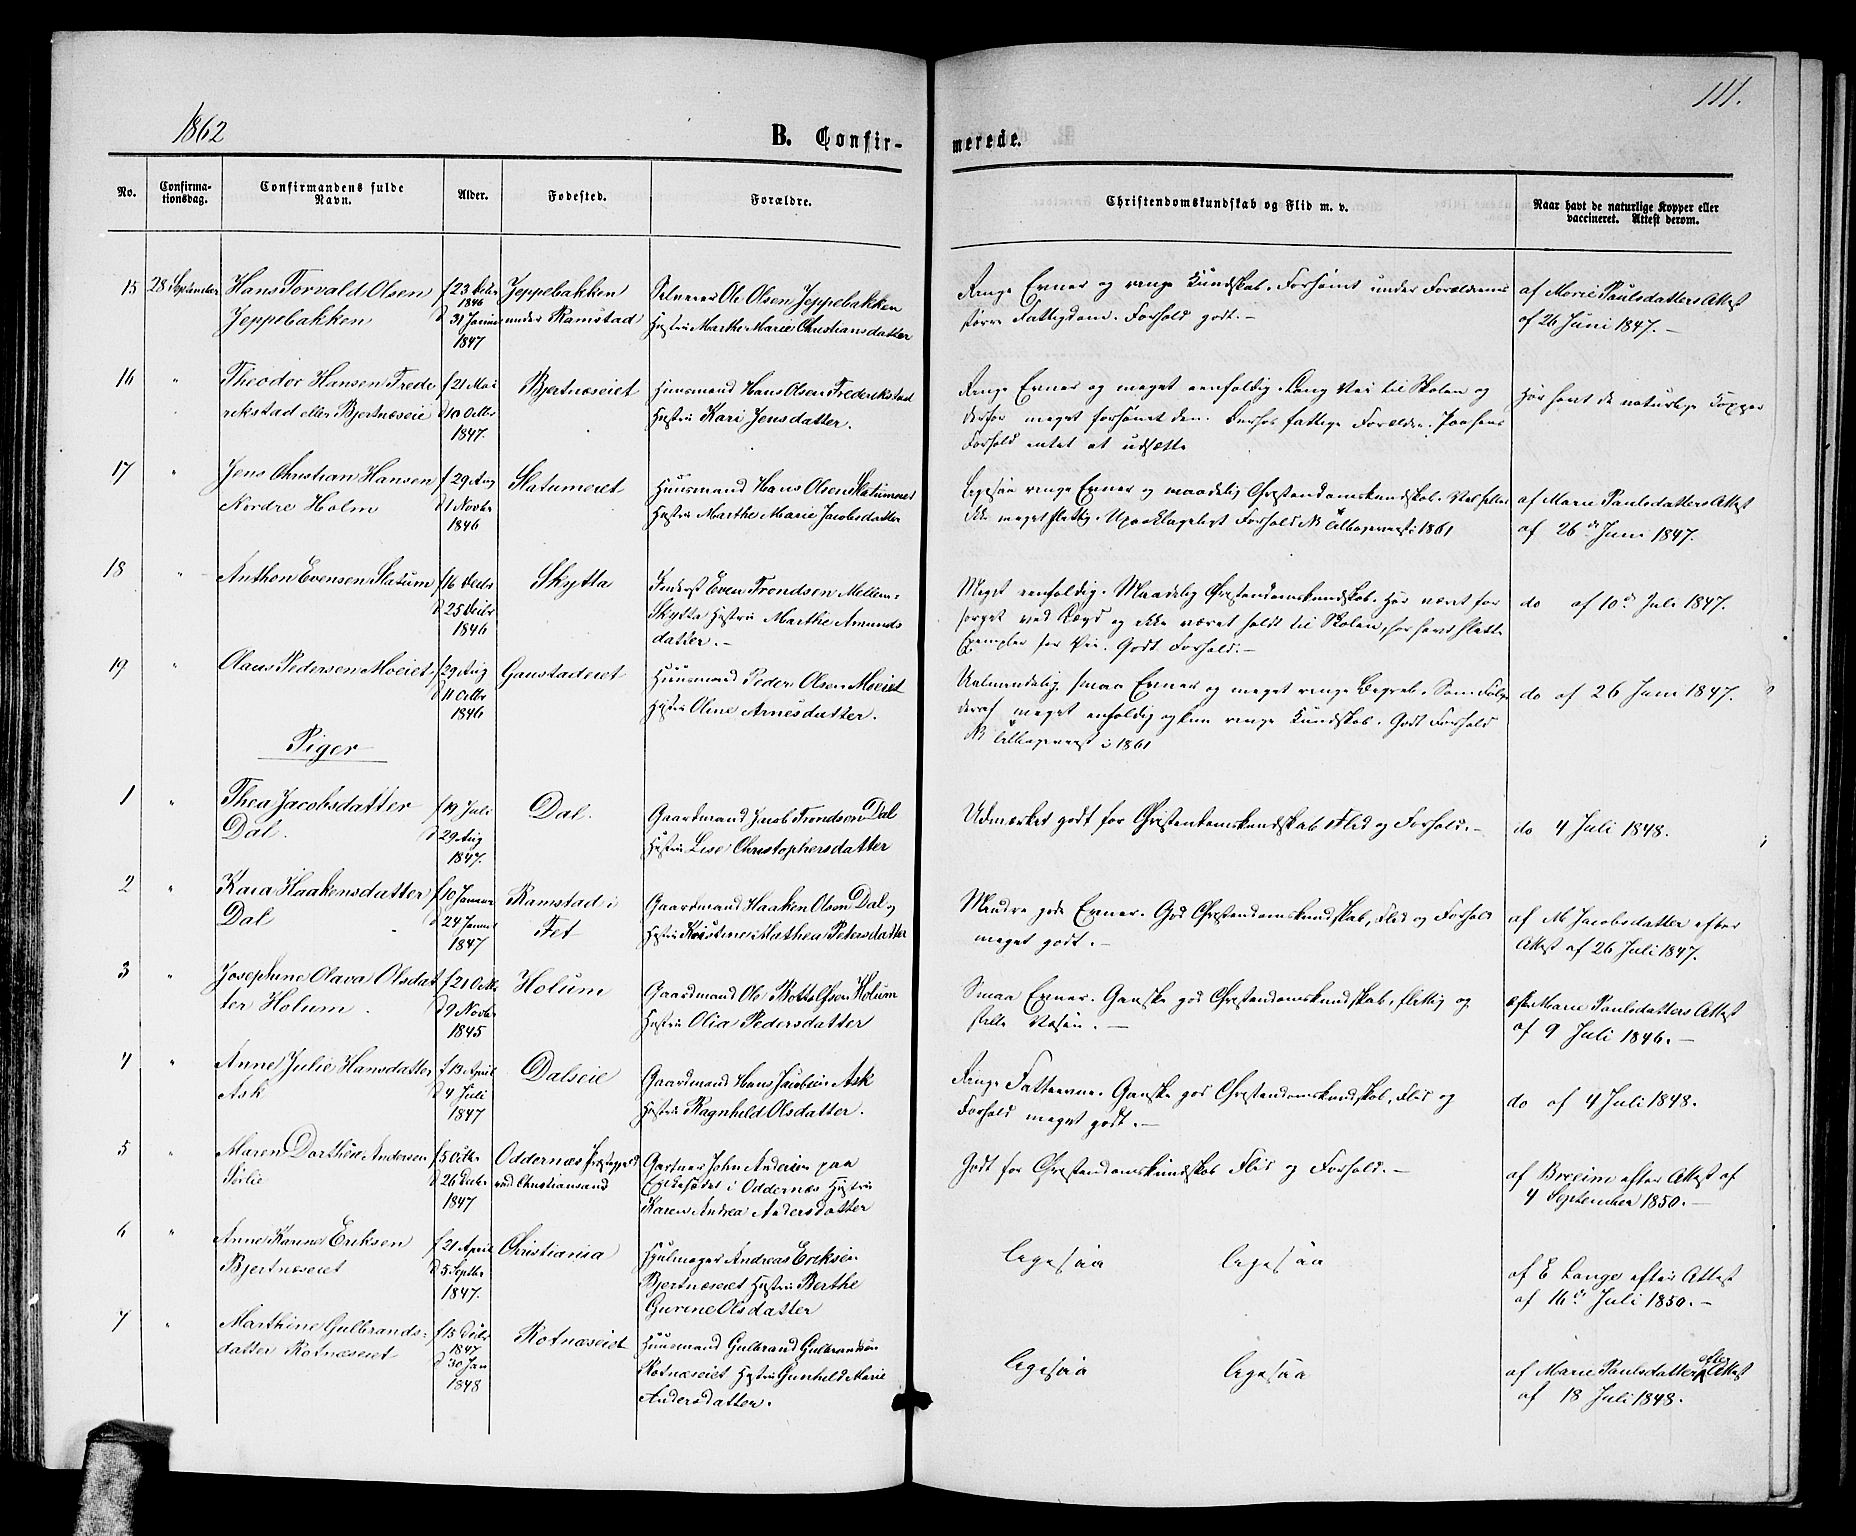 1862
B. Confir-
merede.
111.
No.
Confirma-
tionsdag.
Confirmandens fulde
Navn.
Alder.
Fødested.
Forældre.
Christendomskundskab og Flid m. v.
Naar havt de naturlige Kopper eller
vaccineret. Attest derom.
15 28 September Hans Torvald Olsen
Jeppebakken
f 23 Debr
1846
d 31 Januar
1847
Jeppebakken
under Ramstad
Selveier Ole Olsen Jeppebakken
Hustru Marthe Marie Christiansdatter
Ringe Evner og ringe Kundskab. Forsømt under Forældrenes
større Fattigdom. Forhold godt.-
af Marie Paulsdatters Attest
af 26 Juni 1847.-
16 " Theodor Hansen Frede
rikstad eller Bjertnæseie
f 21 Mai
d 10 Octbr
1847.
Bjertnæseiet
Huusmand Hans Olsen Frederikstad
Hustru Kari Jensdatter.
Ringe Evner og meget eenfoldig. Lang Vei til Skolen og
derfor meget forsømt den. Derhos fattige Forældre.
Forhold intet at udsætte
Har havt de naturlige Kopper
17 " Jens Christian Hansen
Nordre Holm
f 29 Aug
d 1 Novbr
1846
Slatumeiet
Huusmand Hans Olsen Slatumeiet
Hustru Marthe Marie Jacobsdatter
Ligesaa ringe Evner og maadelig Christendomskundskab.
ikke meget flittig. Upaaklageligt Forhold. NB Tilbageviist i 1861
af Marie Paulsdatters Attest
af 26de Juni 1847.
18 " Anthon Evensen Slatum
f 16 Debr
d 25 Debr
1846
Skytta
Inderst Even Trondsen Mellem-
Skytta Hustru Marthe Amunds
datter.-
Meget eenfoldig. Maadelig Christendomskundskab. Har været for
sørget ved Lægd og ikke været holdt til Skolen, har havt slette
Exempler for sig. Godt Forhold.-
do af 10de Juli 1847.
19 " Olaus Pedersen Moeiet
f 29 Aug
d 11 Octbr
1846
Gaustadeiet
Huusmand Peder Olsen Moeiet
Hustru Oline Arnesdatter.
Ualmindelig smaa Evner og meget ringe Begreb. Som Følge
deraf meget enfoldig og kun ringe Kundskab. Godt Forhold
NB Tilbageviist i 1861
do af 26 Juni 1847.
Piger
1 " Thea Jacobsdatter
Dal.
f 19 Juli
d 29 Aug
1847.
Dal.
Gaardmand Jacob Trondsen Dal
Hustru Lise Christophersdatter
Udmærket godt for Christendomskundskab Flid og Forhold.-
do 4 Juli 1848.
2 " Kaia Haakensdatter
Dal
f 10 Januar
d 24 Januar
1847
Ramstad i
Fet
Gaardmand Haaken Olsen Dal og
Hustru Kristine Mathea Petersdatter
Mindre gode Evner. God Christendomskundskab, Flid og Forhold
meget godt.-
af M Jacobsdatter efter
Attest af 26 Juli 1847.
3 " Josephine Olava Olsdat
ter Holum.
f 21 Octbr
d 9 Novbr
1845
Holum
Gaardmand Ole Rolfsen Holum
Hustru Olia Pedersdatter
Smaa Evner. Ganske god Christendomskundskab, flittig og
stille Væsen.-
efter Marie Paulsdatters Attest
af 9 Juli 1846.-
4 " Anne Julie Hansdatter
Ask
f 13 April
d 4 Juli
1847
Dalseie
Gaardmand Hans Jacobsen Ask
Hustru Ragnhild Olsdatter.
Ringe Fatteevne. Ganske god Christendomskundskab, Flid og
Forhold meget godt.-
do af 4 Juli 1848.
5 " Maren Dorthea Andersen
Sørlie
f 5 Octbr
d 26 Debr
1847
Oddernæs Præstegjeld
ved Christiansand
Gartner John Andersen paa
Enkesædet i Oddernæs Hustru
Karen Andrea Andersdatter
Godt for Christendomskundskab Flid og Forhold.-
af Breeim efter Attest af
4 September 1850.-
6 " Anne Hanna Eriksen
Bjertnæseiet
f 21 April
d 5 Septbr
1847.
Christiania
Hjulmager Andreas Eriksen
Bjertnæseiet Hustru Berthe
Gurine Olsdatter
Ligesaa Ligesaa
af E Lange efter Attest
af 16de Juli 1850.-
7 " Marthine Gulbrands-
datter Rotnæseiet
f 15 Debr
1847
d 30 Jan
1848
Rotnæseiet
Huusmand Gulbrand Gulbrandsen
Rotnæseiet Hustru Gunhild Marie
Andersdatter.
Ligesaa Ligesaa
af Marie Paulsdatter efter Attest
af 18 Juli 1848.